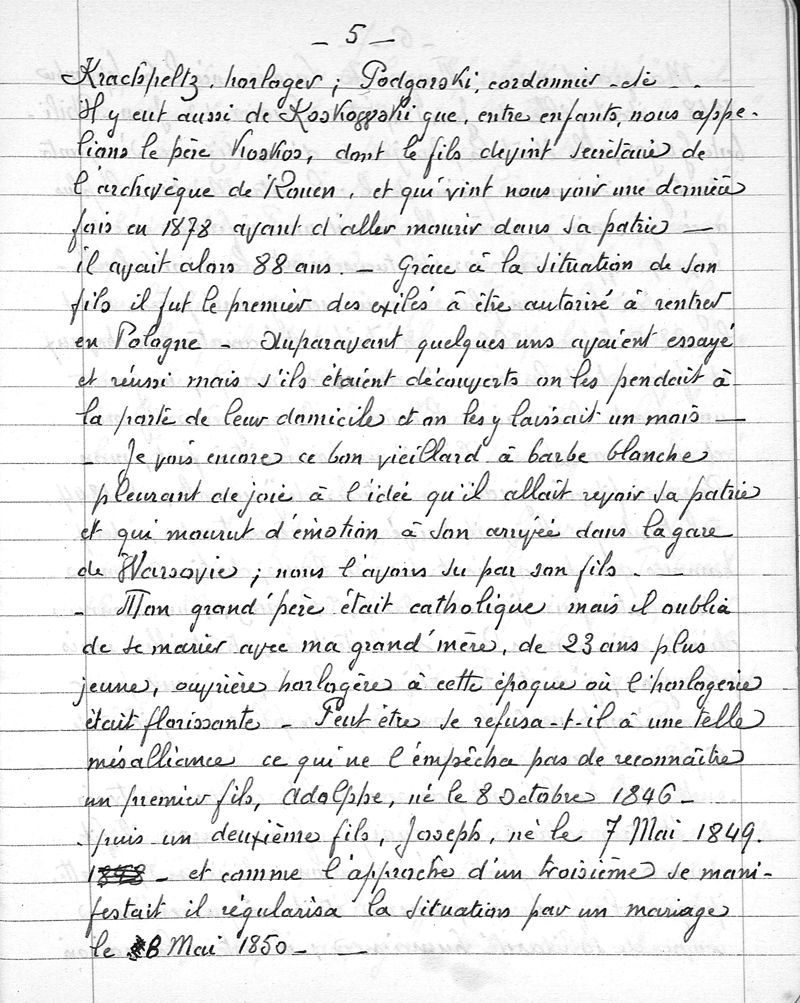 — 5 —
Krachpeltz, horloger ; Podgorski, cordonnier - etc - . .
Il y eut aussi de Koskowski que, entre enfants, nous appe-
lions le père Koskos, dont le fils devint secrétaire de
l'archevêque de Rouen, et qui vint nous voir une dernière
fois en 1878 avant d'aller mourir dans sa patrie —
il avait alors 88 ans. — Grâce à la situation de son
fils il fut le premier des exilés à être autorisé à rentrer
en Pologne - Auparavant quelques uns avaient essayé
et réussi mais s'ils étaient découverts on les pendait à
la porte de leur domicile et on les y laissait un mois —
- Je vois encore ce bon vieillard à barbe blanche
pleurant de joie à l'idée qu'il allait revoir sa patrie
et qui mourut d'émotion à son arrivée dans la gare
de Warsovie ; nous l'avons su par son fils. —
- Mon grand'père était catholique mais il oublia
de se marier avec ma grand'mère, de 23 ans plus
jeune, ouvrière horlogère à cette époque où l'horlogerie
était florissante - Peut être se refusa-t-il à une telle
mésalliance ce qui ne l'empêcha pas de reconnaître
un premier fils, Adolphe, né le 8 Octobre 1846 -
puis un deuxième fils, Joseph, né le 7 Mai 1849.
- et comme l'approche d'un troisième se mani-
festait il régularisa la situation par un mariage
le 8 Mai 1850 - —